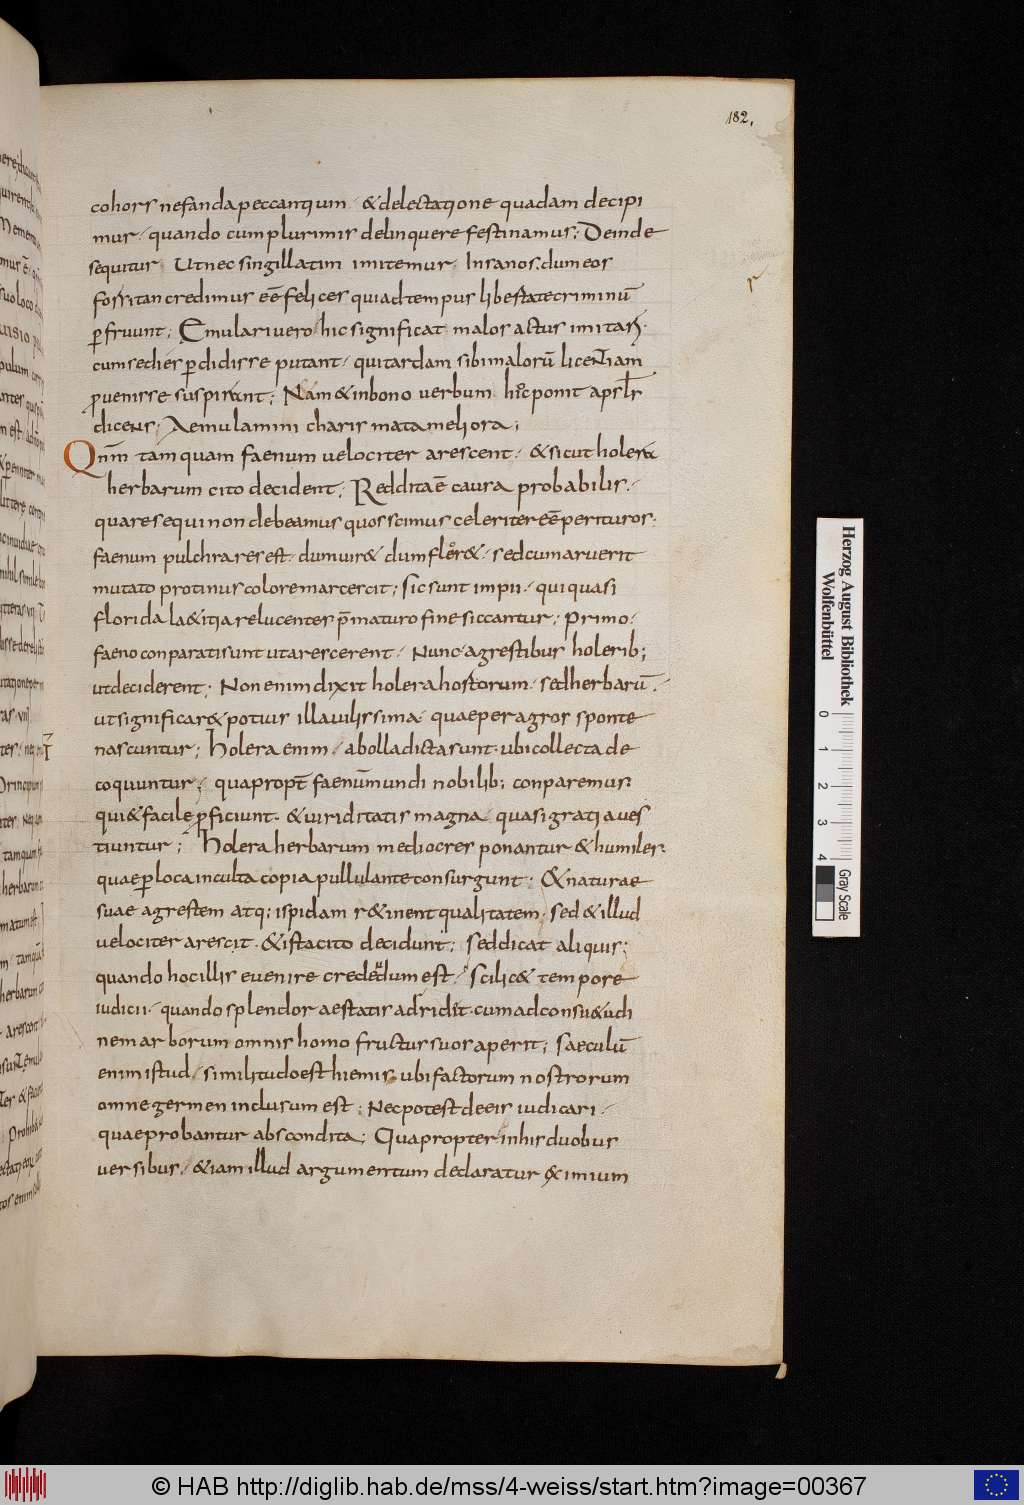 182.
cohors nefanda peccantium · & delectatione quadam decipi
mur · quando cum plurimis delinquere festinamus; Deinde
sequitur Ut nec singillatim imitemur Insanos. dum eos
forsitan credimus eē felices qui ad tempus libestate criminū
ꝑfruunt; Emulari vero hic significat malos actus imitari·
cum se dies ꝑdidisse putant · qui tardam sibi malorū licentiam
ꝓvenisse suspirant; Nam & in bono verbum hoc ponit apsłs
dicens · Aemulamini charismata meliora;
Qnm̄ tamquam faenum velociter arescent · & sicut holera
herbarum cito decident; Reddita ē causa probabilis ·
quare sequi non debeamus quos scimus celeriter eē perituros·
faenum pulchra res est · dum vir& dum flor& · sed cum aruerit
mutato protinus colore marcescit; sic sunt impii · qui quasi
florida la&itia relucent& p̄maturo fine siccantur; Primo·
faeno conparati sunt ut arescerent · Nunc agrestibus holerib;
ut deciderent; Non enim dixit holera hostorum · sed herbarū ·
ut significar& potius illa vilissima · quae per agros sponte
nascuntur; holera enim · ab olla dicta sunt · ubi collecta de
coquuntur; quapropt̄ faenū mundi nobilib; conparemus·
qui & facile ꝓficiunt · & viriditatis magna quasi gratia ves
tiuntur; holera herbarum mediocres ponantur & humiles·
quae ꝑ loca inculta copia pullulante consurgunt; & naturae
suae agrestem atq; ispidam r&inent qualitatem · sed & illud
velociter arescit · & ista cito decidunt; sed dicat aliquis;
quando hoc illis evenire credendum est · scilic& tempore
iudicii · quando splendor aestatis adridet · cum ad consu&udi
nem arborum omnis homo fructus suos aperit; saeculū
enim istud · similitudo est hiemis · ubi factorum nostrorum
omne germen inclusum est; Nec potest de eis iudicari ·
quae probantur abscondita; Quapropter in his duobus
versibus · &iam illud argumentum declaratur eximium
Herzog August Bibliothek
Wolfenbüttel
0 1 2 3 4
Gray Scale
© HAB http://diglib.hab.de/mss/4-weiss/start.htm?image=00367